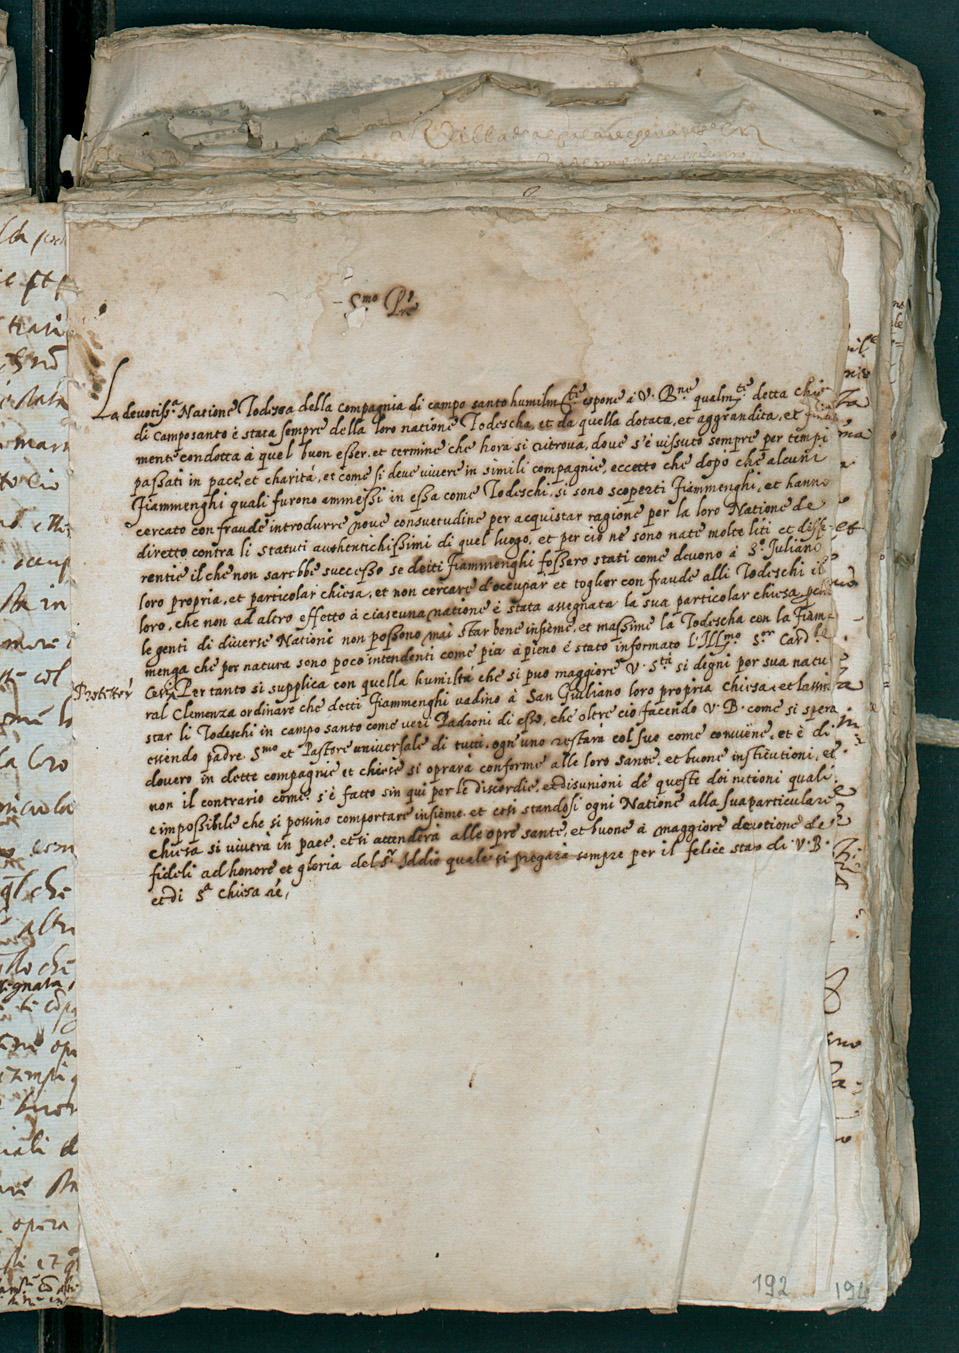 S.mo P.re
La devotiss.a Natione Todesca della Compagnia di campo santo humilm.te espone à V. B.ne qualm.te detta chiesa
di Camposanto è stata sempre della loro natione Todescha, et da quella dotata, et aggrandita, et
mente condotta à quel buon esser, et termine che hora si ritrova, dove s'è vissuto sempre per tempi
passati in pace, et charità, et come si deve vivere in simili compagnie, eccetto che dopò che alcuni
Fiammenghi quali furono ammessi in essa come Todeschi, si sono scoperti Fiammenghi, et hanno
cercato con fraude introdurre nove consuetudine per acquistar ragione per la loro Natione de
diretto contra li statuti authentichissimi di quel luogo, et per ciò ne sono nate molte liti et diffe-
rentie il che non sarebbe successo se detti Fiammenghi fossero stati come deveno à S.o Juliano
loro propria, et particolar chiesa, et non cercare d'occupar et toglier con fraude alli Todeschi il
loro, che non ad altro effetto à ciascuna natione è stata assegnata la sua particolar chiesa, perche
le genti di diverse Natione non possono mai star bene insieme, et massime la Todescha con la Fiam-
menga che per natura sono poco intendenti come più à pieno è stato informato l'Ill.mo S.or Card.le
Protettor
Per tanto si supplica con quella humiltà che si può maggiore V. S.tà si digni por sua natu
ral Clemenza ordinare che detti Fiammenghi vadino à San Giuliano loro propria chiesa, et lassin
star li Todeschi in campo santo come veri Padroni di esso, che oltre ciò facendo V. B. come si spera
essendo padre S.mo et Pastore universale di tutti, ogn'uno restarà col suo come conviene, et è di
dovero in dette compagnie et chiese si oprarà conforme alle loro sante, et buone institutioni, et
non il contrario come s'è fatto sin qui per le discordie, et disunioni de queste doi nationi quale
è impossibile che si possino comportare insieme, et così standosi ogni Natione alla sua particulare
chiesa si viverà in pace, et si attenderà alle opre sante, et buone à maggiore devotione de
fideli ad honore et gloria del S.r Iddio quale si pregarà sempre per il felice stato di V. B.
et di S.a Chiesa
192
194